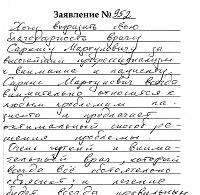 Заявление № 952
Хочу выразить свою
благодарность врачу
Саркису Мартуновичу за
высочайший профессионализм
и внимание к пациенту.
Саркис Мартунович всегда
внимательно относится к
любым проблемам па-
циента и предлагает
оптимальный способ ре-
шения проблемы.
Очень чуткий и внима-
тельный врач, который
всегда всё досконально
объяснит и лечение
будет всегда правильным